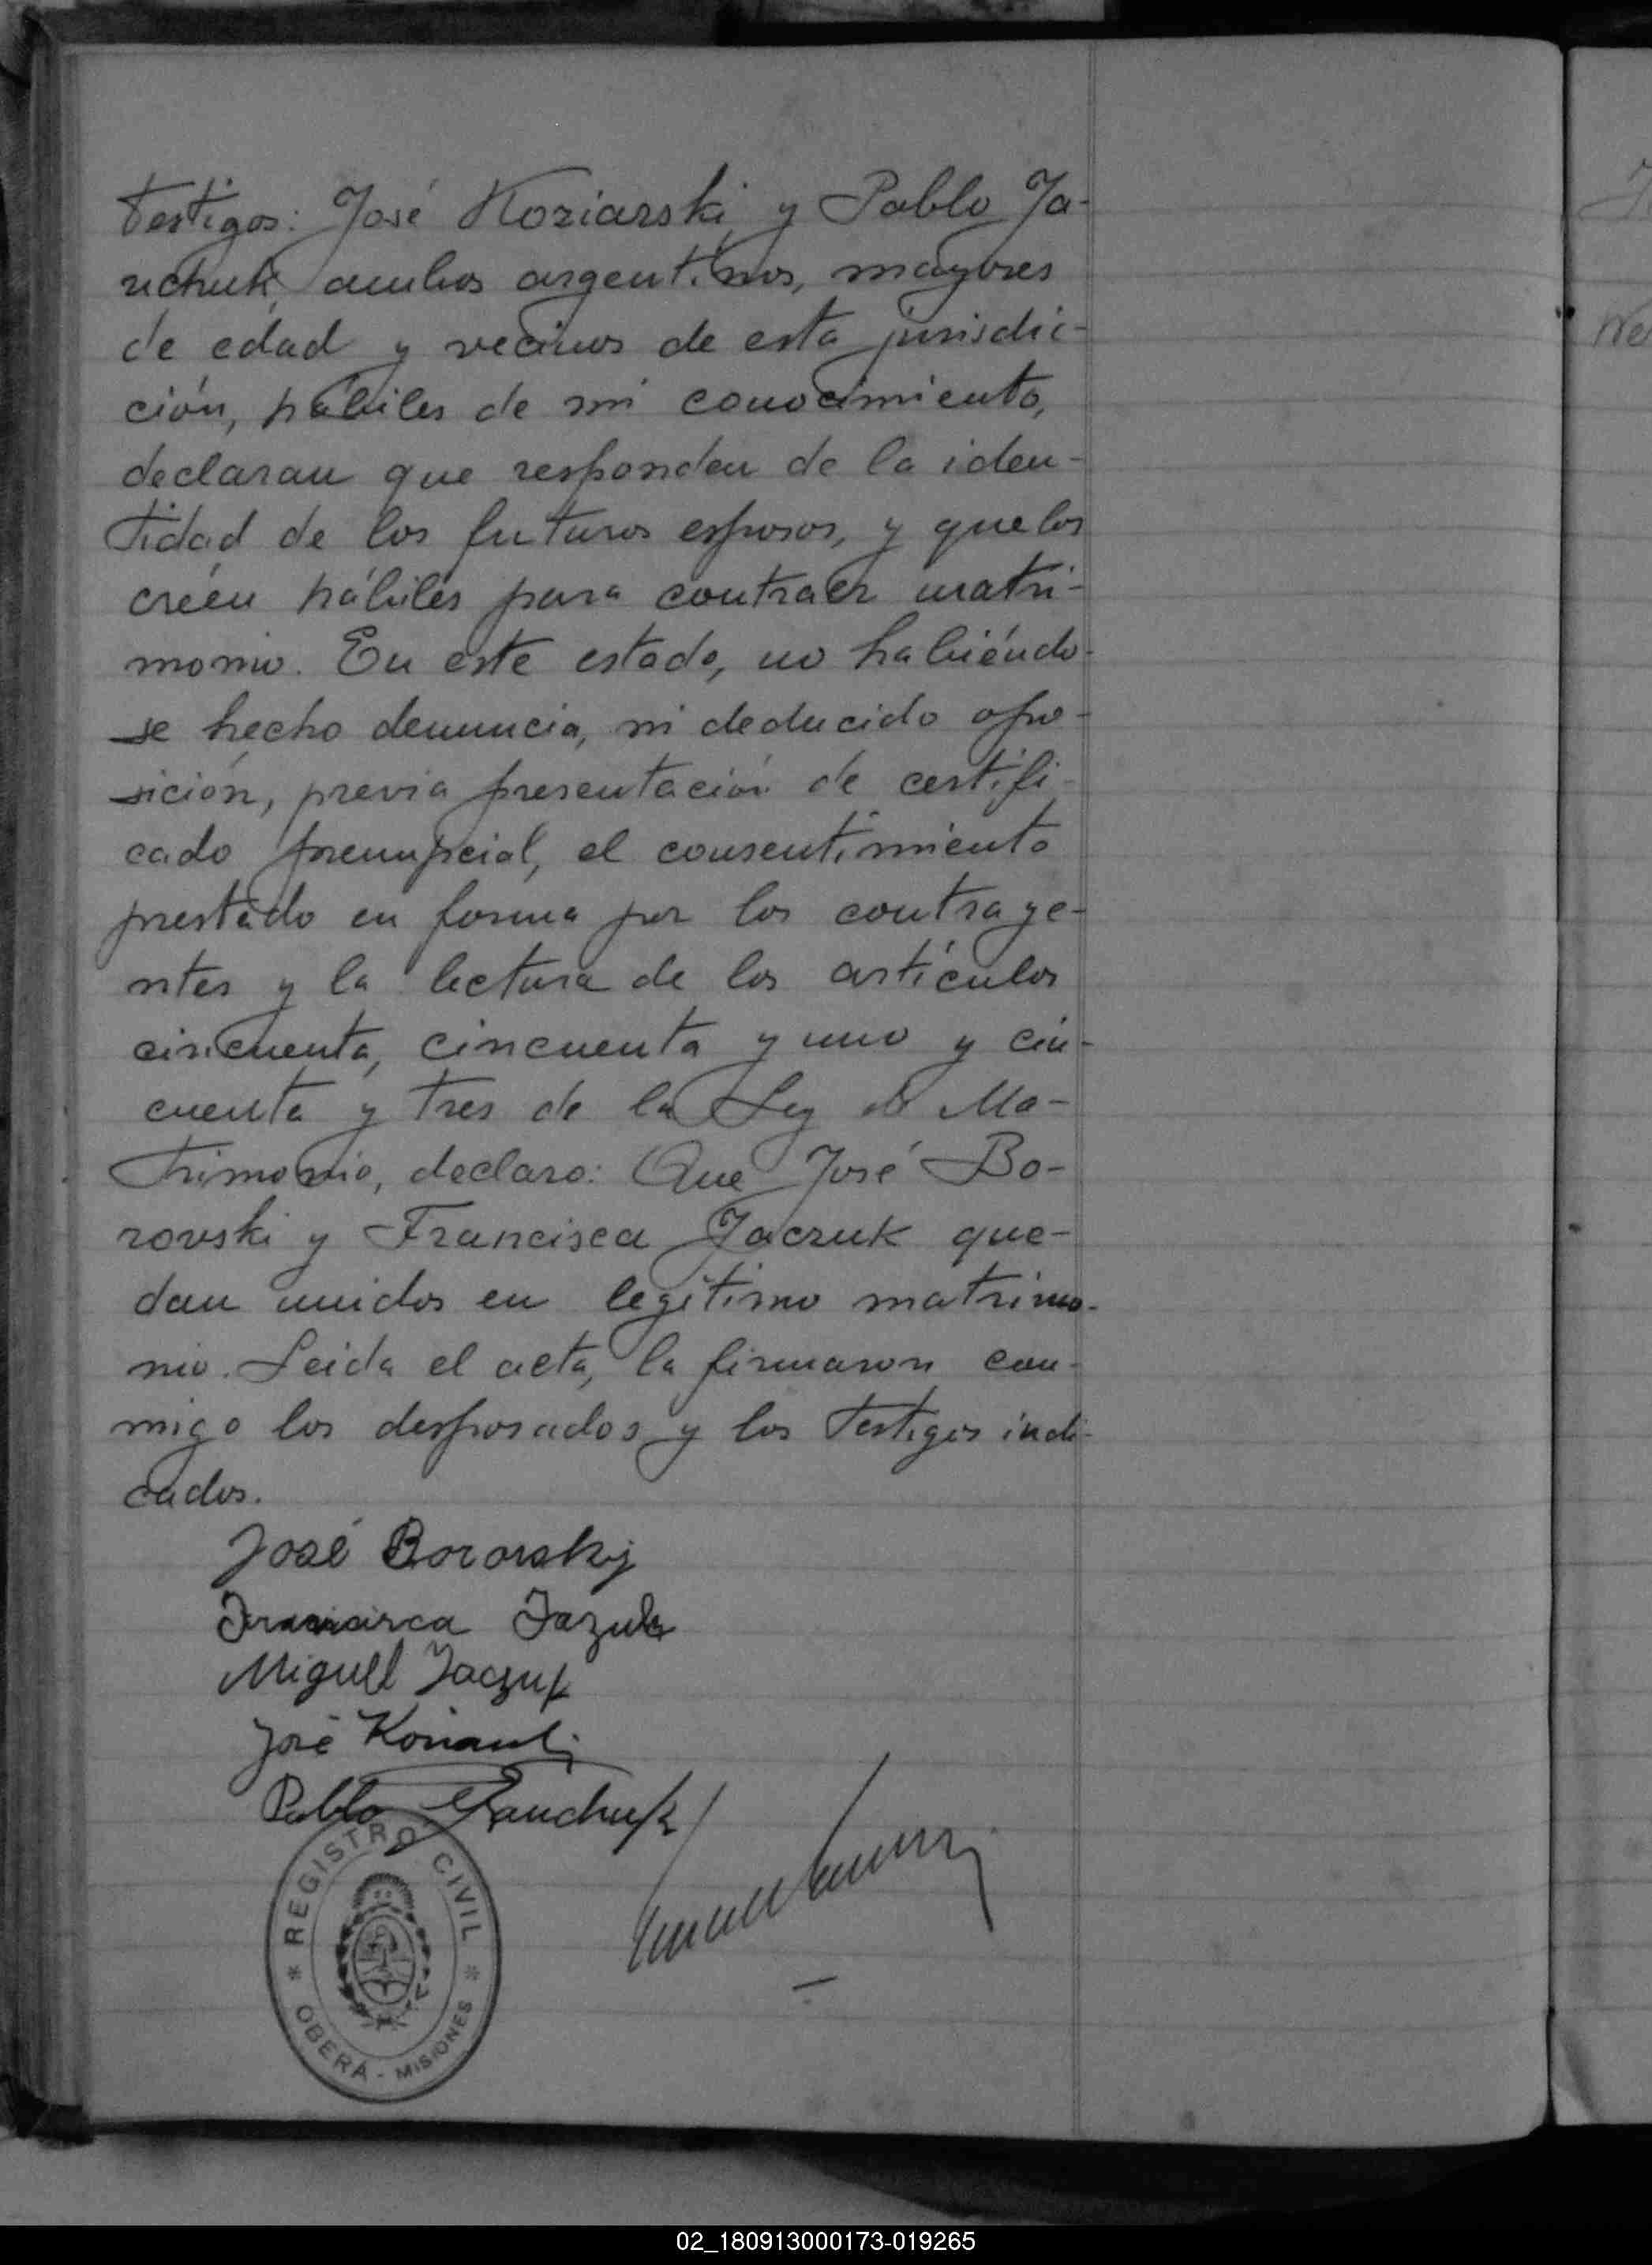 testigos: José Koziarski y Pablo Ja-
nchuk, ambos argentinos, mayores
de edad y vecinos de esta jurisdic-
ción, hábiles de mi conocimiento,
declaran que responden de la iden-
tidad de los futuros esposos, y que los
créen hábiles para contraer matri-
monio. En este estado, no habiéndo-
se hecho denuncia, ni deducido opo-
sición, previa presentación de certifi-
cado prenupcial, el consentimiento
prestado en forma por los contraye-
ntes y la lectura de los artículos
cincuenta, cincuenta y uno y cin-
cuenta y tres de la Ley de Ma-
trimonio, declaro: Que José Bo-
rovski y Francisca Jaczuk que-
dan unidos en legítimo matrimo-
nio. Leida el acta, la firmaron con-
migo los desposados y los testigos indi-
cados.
José Borovskij
Francisca Jazuk
Miguel Jaczuk
José
Pablo Janchuk
REGISTRO CIVIL
OBERÁ - MISIONES
02_180913000173-019265